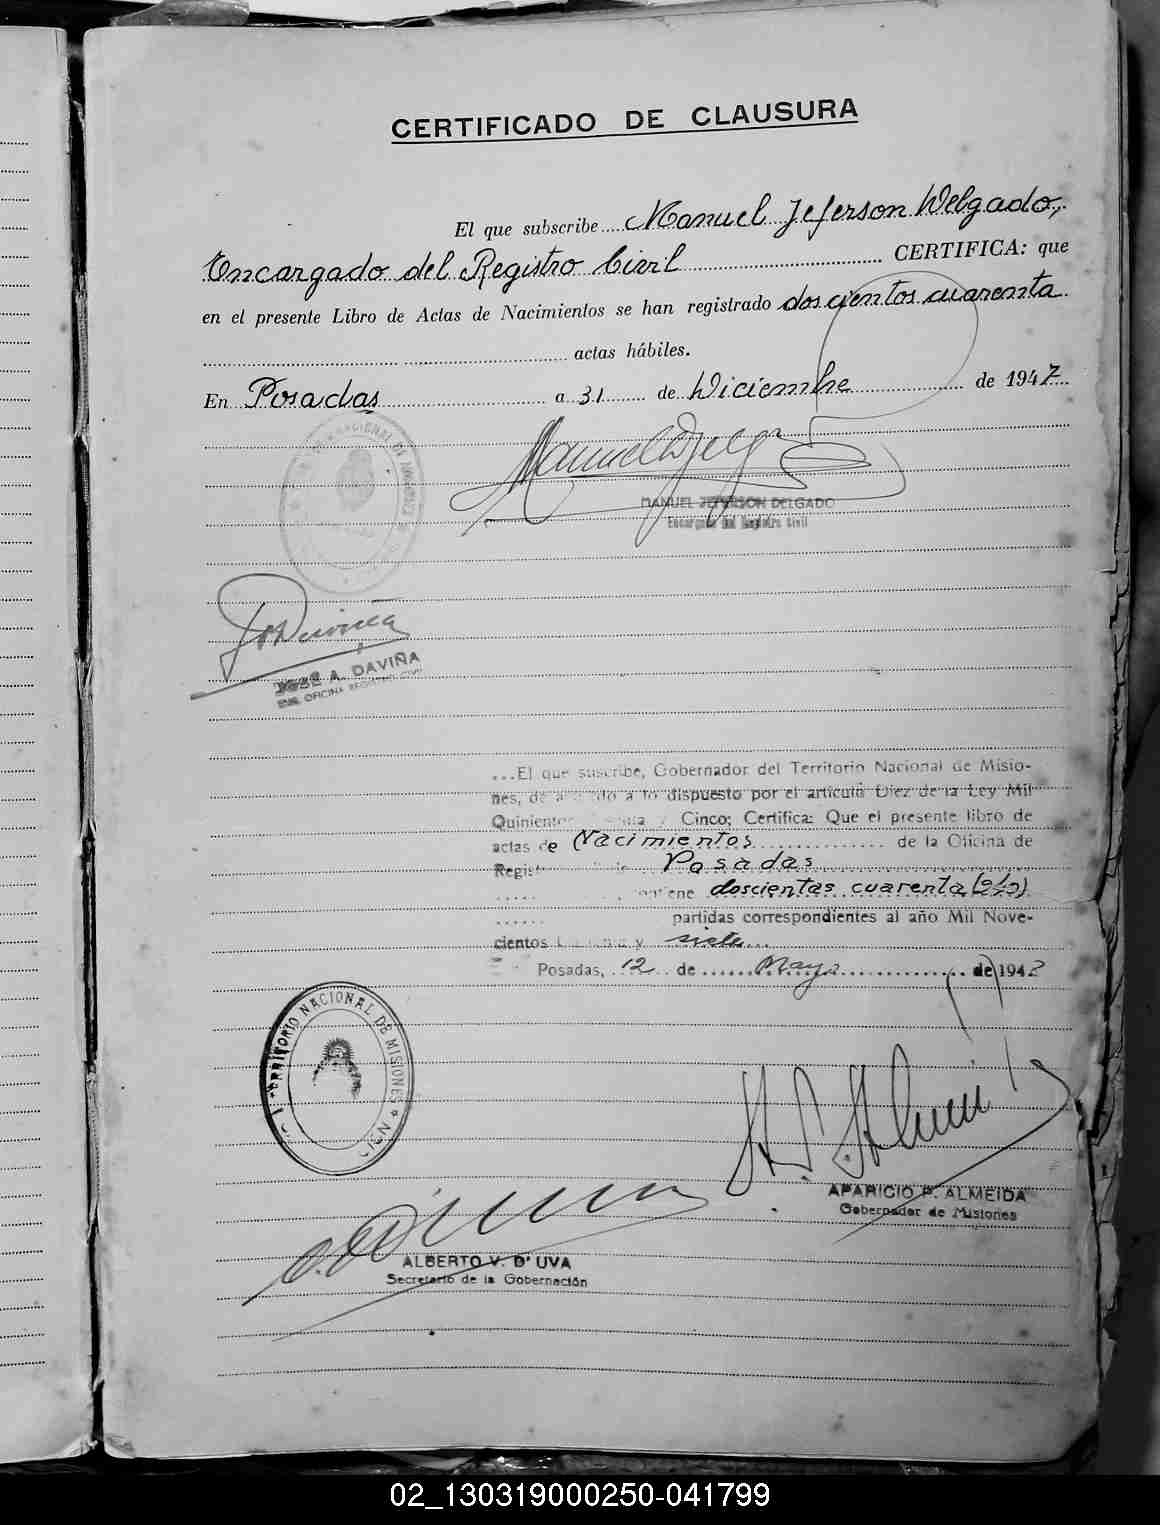 CERTIFICADO DE CLAUSURA
El que subscribe Manuel Jeferson Delgado,
Encargado del Registro Civil CERTIFICA: que
en el presente Libro de Actas de Nacimientos se han registrado doscientos cuarenta
actas hábiles.
En Posadas a 31 de Diciembre de 1947
MANUEL JEFERSON DELGADO
Encargado del Registro Civil
JOSE A. DAVIÑA
OFICINA REGISTRO CIVIL
...El que suscribe, Gobernador del Territorio Nacional de Misio-
nes, de a lo dispuesto por el artículo Diez de la Ley Mil
Cinco; Certifica: Que el presente libro de
actas de Nacimientos de la Oficina de
Posadas
doscientas cuarenta (240)
partidas correspondientes al año Mil Nove-
cientos y siete...
Posadas, 12 de Mayo de 194
TERRITORIO NACIONAL DE MISIONES
APARICIO P. ALMEIDA
Gobernador de Misiones
ALBERTO V. D'UVA
Secretario de la Gobernación
02_130319000250-041799